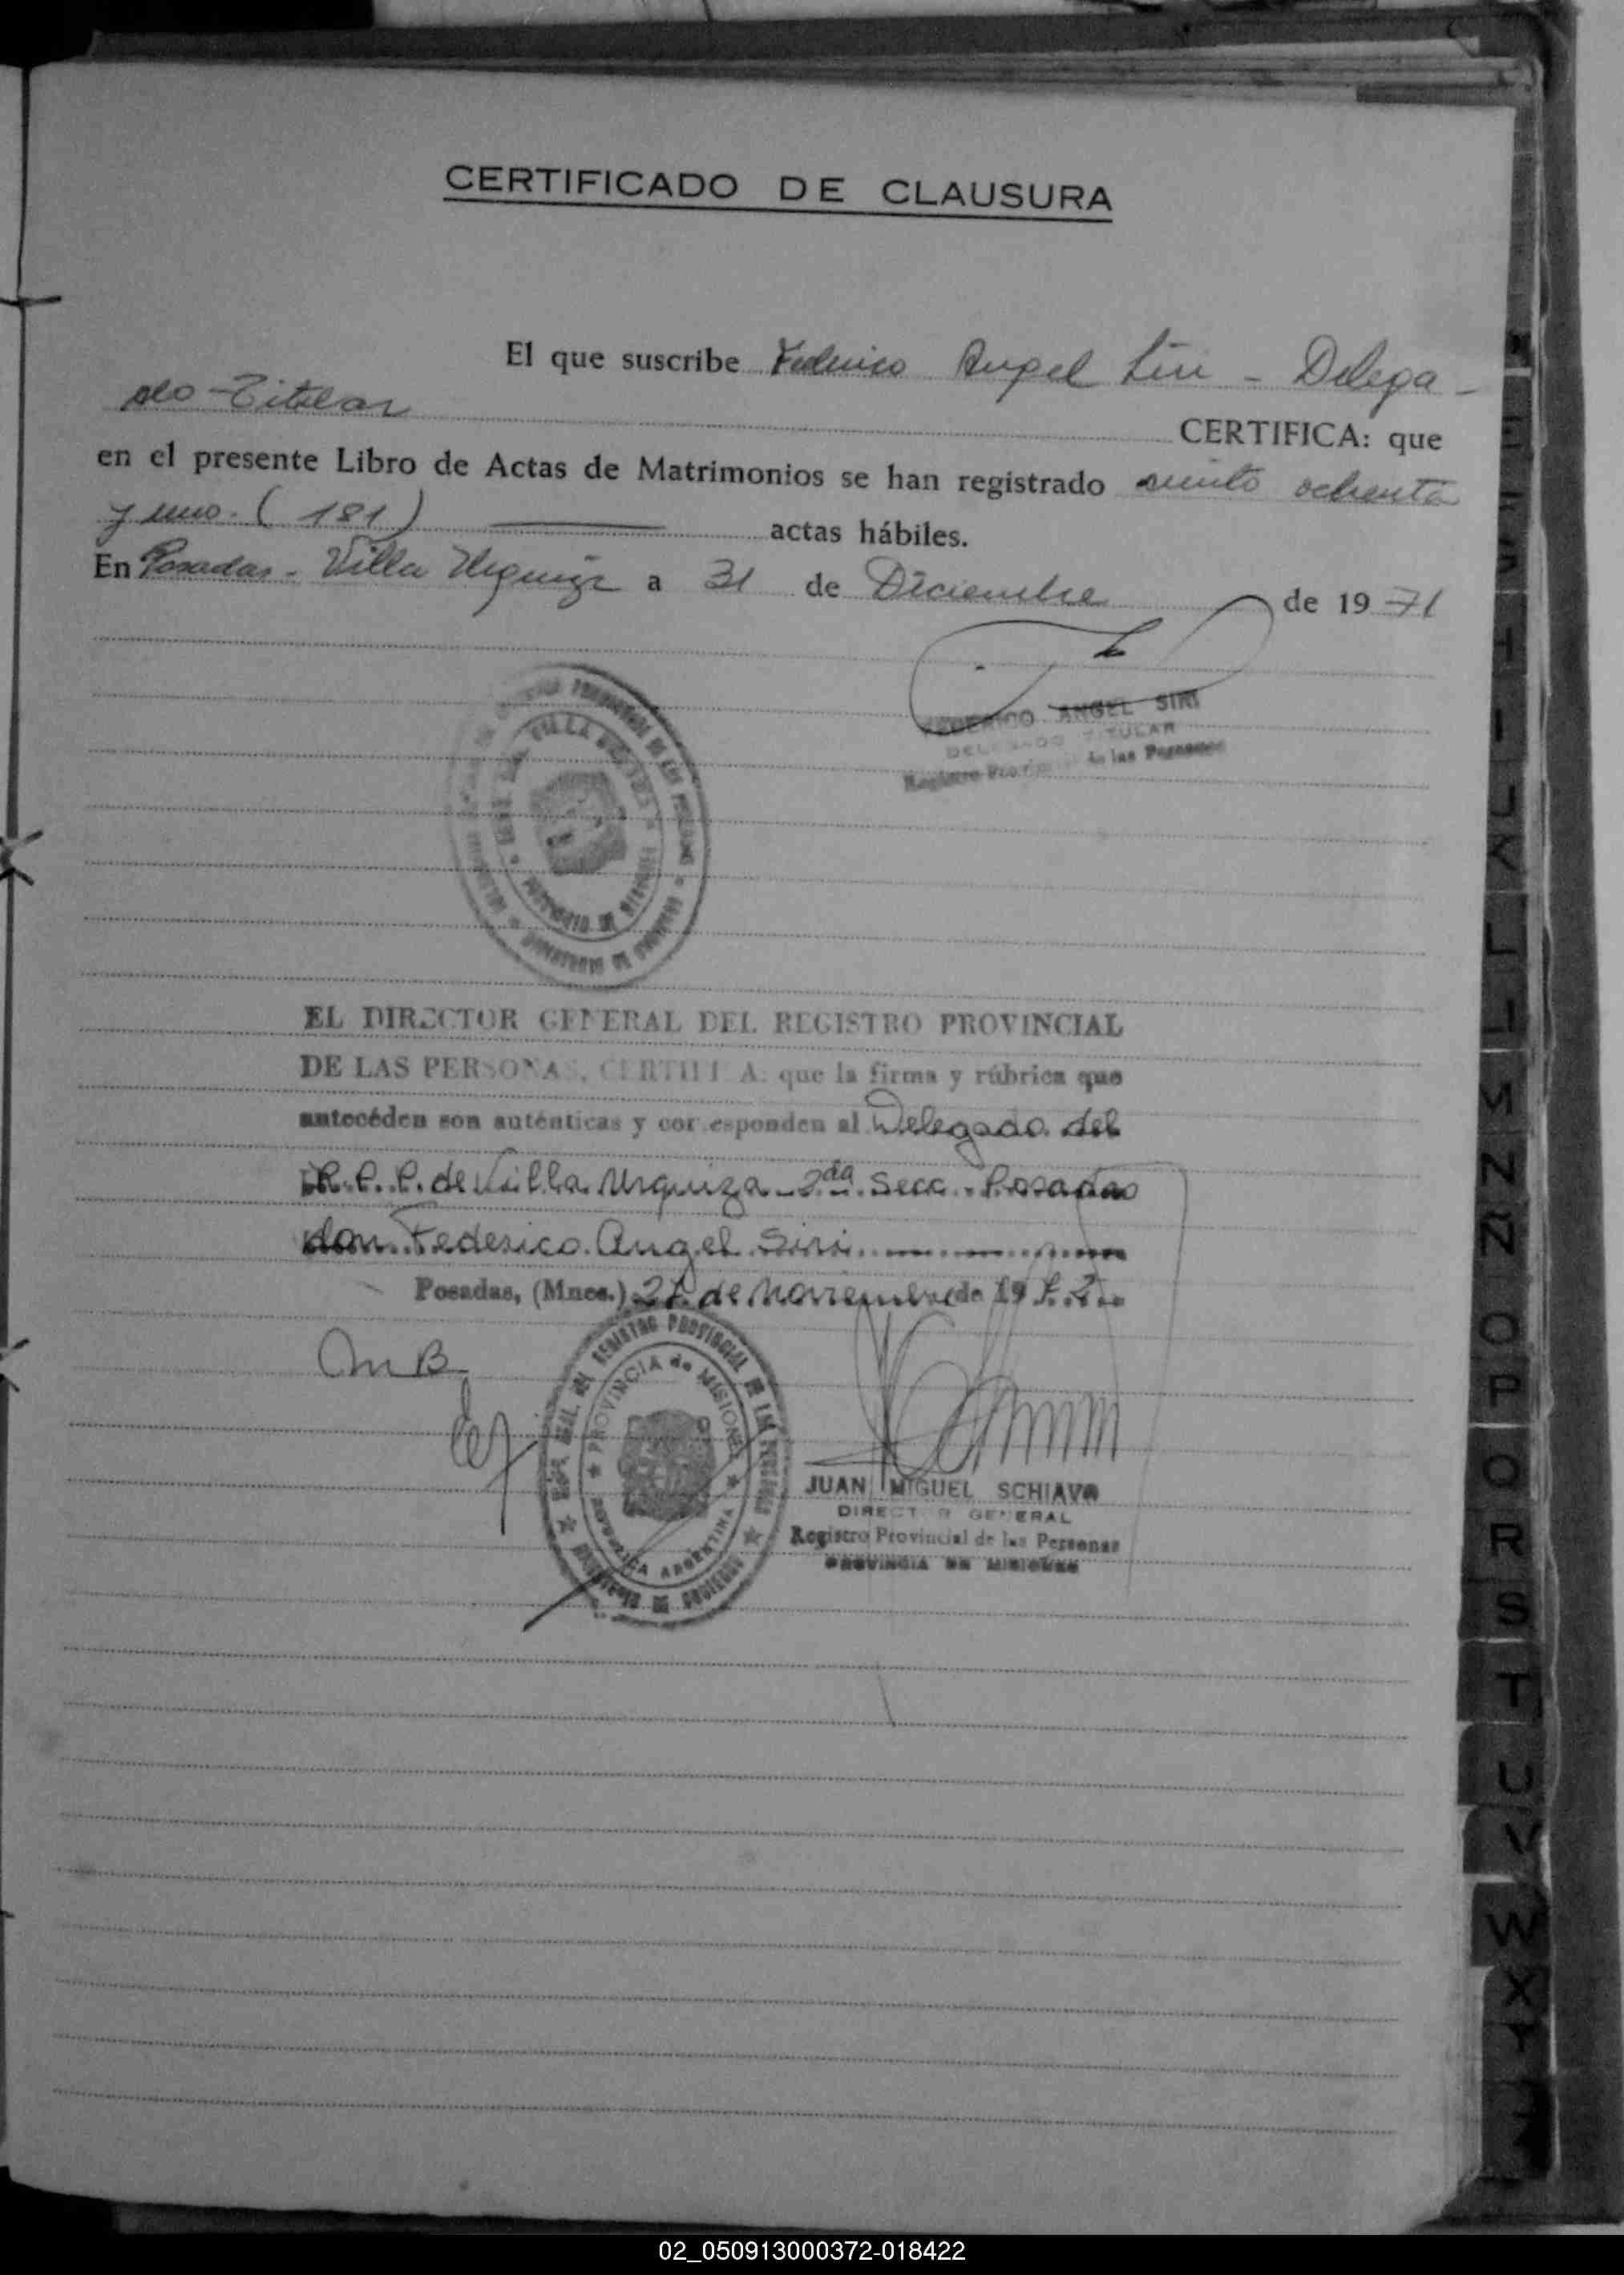 CERTIFICADO DE CLAUSURA
El que suscribe Federico Angel Siri - Delega-
do Titular CERTIFICA: que
en el presente Libro de Actas de Matrimonios se han registrado ciento ochenta
y uno. (181) actas hábiles.
En Posadas - Villa Urquiza a 31 de Diciembre de 1971
FEDERICO ANGEL SIRI
DELEGADO TITULAR
Registro Provincial de las Personas
EL DIRECTOR GENERAL DEL REGISTRO PROVINCIAL
DE LAS PERSONAS, CERTIFICA: que la firma y rúbrica que
antecéden son auténticas y corresponden al Delegado del
R.P.P. de Villa Urquiza - 2da. Secc. - Posadas
don Federico Angel Siri
Posadas, (Mnes.) de Noviembre de 19
JUAN MIGUEL SCHIAVO
DIRECTOR GENERAL
Registro Provincial de las Personas
PROVINCIA DE MISIONES
REGISTRO PROVINCIAL DE LAS PERSONAS
PROVINCIA de MISIONES
REPUBLICA ARGENTINA
H
I
J
K
L
M
N
Ñ
O
P
Q
R
S
T
U
V
W
X
Y
Z
02_050913000372-018422